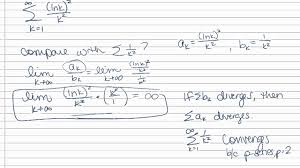 ∞
Σ (lnk)²/k²
k=1
compare with Σ 1/k² ?
aₖ = (lnk)²/k² , bₖ = 1/k²
lim k→∞ aₖ/bₖ = lim k→∞ (lnk)²/k² / 1/k²
lim k→∞ (lnk)²/k² · k²/1 = ∞
if Σbₖ diverges, then
Σ aₖ diverges
∞
Σ 1/k² Converges
k=1
b/c p-series, p=2